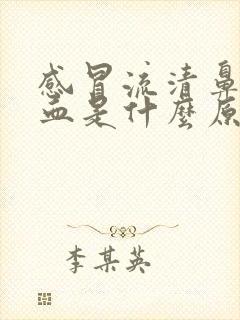 感冒流清鼻
血是什麼原
李某英